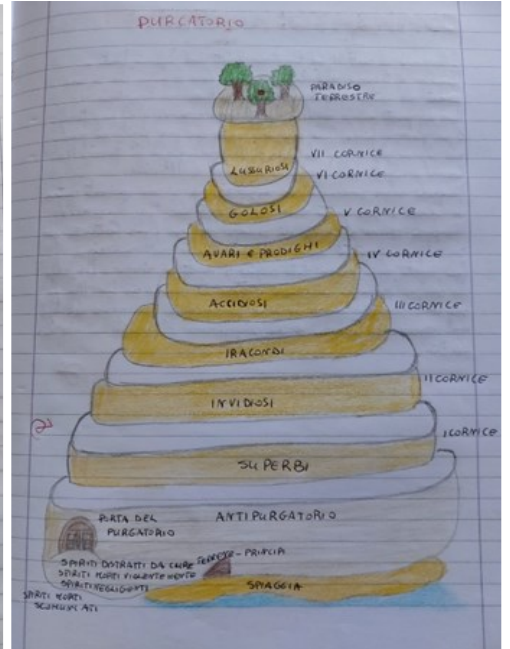 PURGATORIO
PARADISO
TERRESTRE
VII CORNICE
LUSSURIOSI
VI CORNICE
GOLOSI
V CORNICE
AVARI E PRODIGHI
IV CORNICE
ACCIDIOSI
III CORNICE
IRACONDI
II CORNICE
INVIDIOSI
I CORNICE
SUPERBI
PORTA DEL
PURGATORIO
ANTIPURGATORIO
SPIRITI DISTRATTI DA CURE TERRENE - PRINCIPI
SPIRITI MORTI VIOLENTEMENTE
SPIRITI NEGLIGENTI
SPIAGGIA
SPIRITI MORTI
SCOMUNICATI